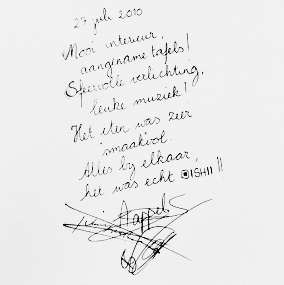 27 juli 2010
Mooi interieur,
aangename tafels!
Sfeervolle verlichting,
leuke muziek!
Het eten was zeer
smaakvol.
Alles bij elkaar,
het was echt OISHII !!
Appels